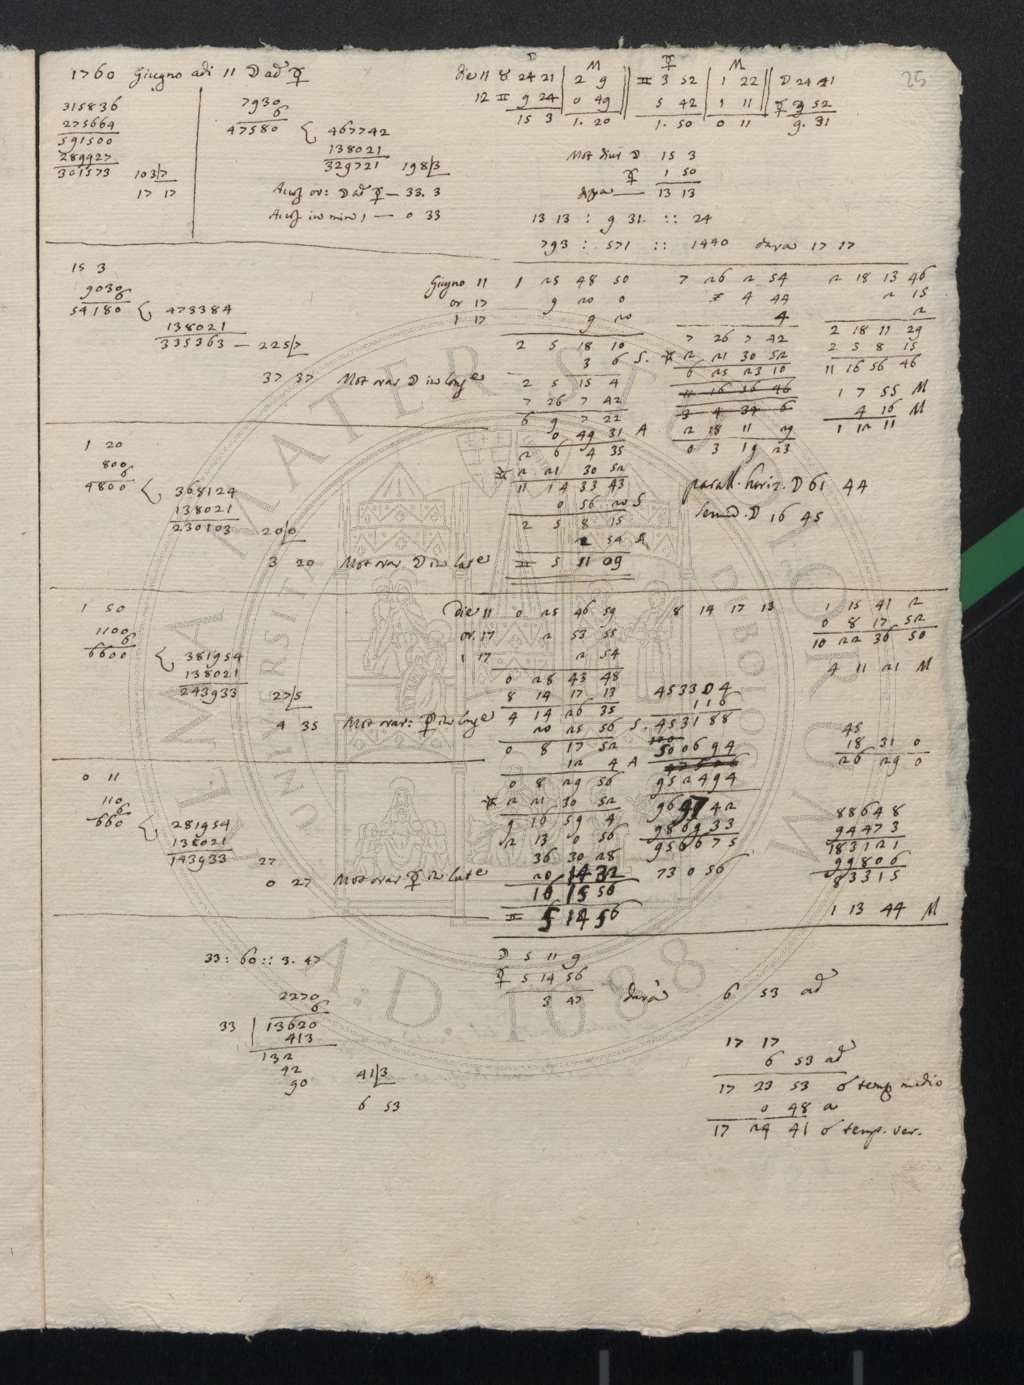 1760 Giugno adi 11 ☽ ad ☿
315836
275664
591500
289927
301573 103/7
17 17
7930
6
47580 { 467742
138021
329721 198/3
33. 3
0 33
☽ M ☿ M
die 11 ♉ 24 21 | 2 9 || ♊ 3 52 | 1 22 || ☽ 24 21
12 ♊ 9 24 | 0 49 || 5 42 | 1 11 || ☿ 3 52
15 3 | 1. 20 || 1. 50 | 0 11 || 9. 31
Mot diur ☽ 15 3
☿ 1 50
13 13
13 13 : 9 31. :: 24
793 : 571 :: 1440 dara 17 17
15 3
9030
6
54180 { 473384
138021
335363 — 225/7
37 37 Mot orar ☽ in long
Giugno 11 1 25 48 50
or 17 9 20 0
1 17 9 20
2 5 18 10
3 6 S.
2 5 15 4
7 26 7 42
6 9 7 22
0 49 31 A
2 6 4 35
2 21 30 52
11 14 33 43
0 56 20 S
2 5 8 15
2 54 A
♊ 5 11 09
7 26 2 54
4 44
4
7 26 7 42
2 21 30 52
6 25 23 10
11 16 56 46
3 4 34 6
2 18 11 29
0 3 19 23
2 18 13 46
2 15
2
2 18 11 29
2 5 8 15
11 16 56 46
1 7 55 M
4 16 M
1 12 11
parall. horiz. ☽ 61 44
semid. ☽ 16 45
1 20
800
6
4800 { 368124
138021
230103 20/0
3 20 Mot orar. ☽ in lat
1 50
1100
6
6600 { 381954
138021
243933 27/5
4 35 Mot orar: ☿ in long
Die 11 0 25 46 59
or. 17 2 53 55
1 17 2 54
0 28 43 48
8 14 17 13
4 14 26 35
20 25 56 S.
0 8 17 52
12 4 A
0 8 29 56
2 21 30 52
9 16 59 4
2 13 0 56
36 30 28
20 14 32
16 15 56
♊ 5 14 56
8 14 17 13
4533 04
116
453188
500694
952494
969742
986933
956675
73 0 56
1 15 41 2
0 8 17 52
10 22 36 50
4 11 21 M
45
18 31 0
26 29 0
88648
94473
183121
99806
83315
1 13 44 M
0 11
110
6
660 { 281954
138021
143933 27
0 27 Mot orar ☿ in lat
33 : 60 :: 3. 47
2270
6
33 | 13620
413
132
42
90 41/3
6 53
☽ 5 11 9
☿ 5 14 56
3 47 dara 6 53 ad
17 17
6 53 ad
17 23 53 ☌ temp medio
0 48 a
17 24 41 ☌ temp. ver.
25
ALMA MATER STUDIORUM
UNIVERSITÀ DI BOLOGNA
A.D. 1088